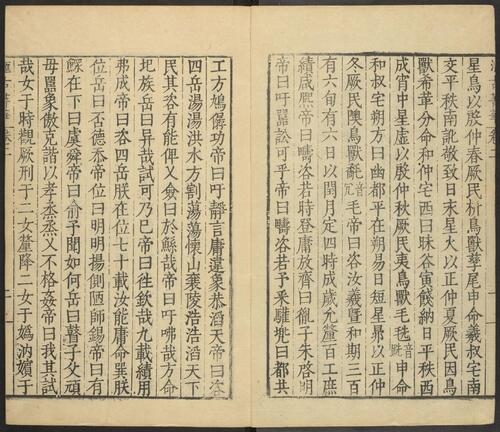 星鳥以殷仲春厥民析鳥獸孳尾申命羲叔宅南
交平秩南訛敬致日末星火以正仲夏厥民因鳥
獸希革分命和仲宅西曰昧谷寅餞納日平秩西
成宵中星虛以殷仲秋厥民夷鳥獸毛毨音跣申命
和叔宅朔方曰幽都平在朔易日短星昴以正仲
冬厥民隩鳥獸氄音冗毛帝曰咨汝羲暨和期三百
有六旬有六日以閏月定四時成歲允釐百工庶
績咸熈帝曰疇咨若時登庸放齊曰胤子朱啓明
帝曰吁嚚訟可乎帝曰疇咨若予采驩兠曰都共
工方鳩僝功帝曰吁靜言庸違象恭滔天帝曰咨
四岳湯湯洪水方割蕩蕩懷山襄陵浩浩滔天下
民其咨有能俾乂僉曰於鯀哉帝曰吁咈哉方命
圯族岳曰异哉試可乃已帝曰往欽哉九載績用
弗成帝曰咨四岳朕在位七十載汝能庸命巽朕
位岳曰否德忝帝位曰明明揚側陋師錫帝曰有
鰥在下曰虞舜帝曰俞予聞如何岳曰瞽子父頑
母嚚象傲克諧以孝烝烝乂不格姦帝曰我其試
哉女于時觀厥刑于二女釐降二女于媯汭嬪于